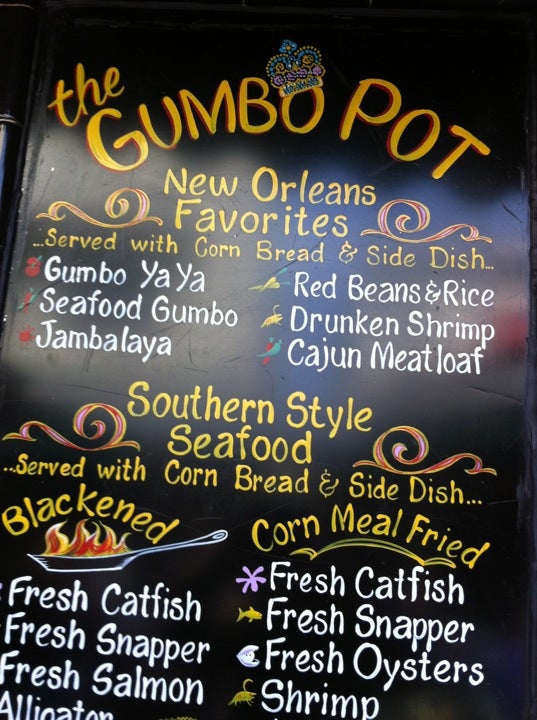 the
GUMBO POT
New Orleans
Favorites
...Served with Corn Bread & Side Dish...
Gumbo YaYa
Seafood Gumbo
Jambalaya
Red Beans & Rice
Drunken Shrimp
Cajun Meatloaf
Southern Style
Seafood
...Served with Corn Bread & Side Dish...
Blackened
Fresh Catfish
Fresh Snapper
Fresh Salmon
Alligator
Corn Meal Fried
Fresh Catfish
Fresh Snapper
Fresh Oysters
Shrimp